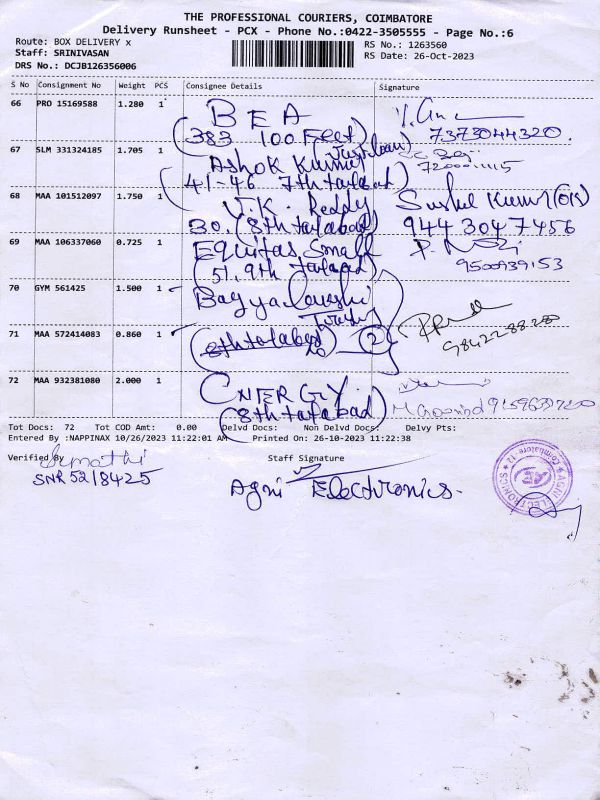 THE PROFESSIONAL COURIERS, COIMBATORE
Delivery Runsheet - PCX - Phone No.:0422-3505555 - Page No.:6
Route: BOX DELIVERY x
RS No.: 1263560
Staff: SRINIVASAN
RS Date: 26-Oct-2023
DRS No.: DCJB126356006
S No Consignment No Weight PCS Consignee Details Signature
66 PRO 15169588 1.280 1 BEA
(383 100 Feet) 7373044320.
67 SLM 331324185 1.705 1 Ashok Kumar
(41-46 7th tatabad)
68 MAA 101512097 1.750 1 V.K. Reddy Sushil Kumar
30. (8th tatabad) 9443047456
69 MAA 106337060 0.725 1 Equitas Small
(51. 9th Tatabad) 9500939153
70 GYM 561425 1.500 1
71 MAA 572414083 0.860 1 (8th tatabad) 2 9842288280
72 MAA 932381080 2.000 1
(8th tatabad)
Tot Docs: 72 Tot COD Amt: 0.00 Delvd Docs: Non Delvd Docs: Delvy Pts:
Entered By :NAPPINAX 10/26/2023 11:22:01 AM Printed On: 26-10-2023 11:22:38
Verified By Staff Signature
SNR 5218425
Agni Electronics.
AGNI ELECTRONICS
Coimbatore - 12